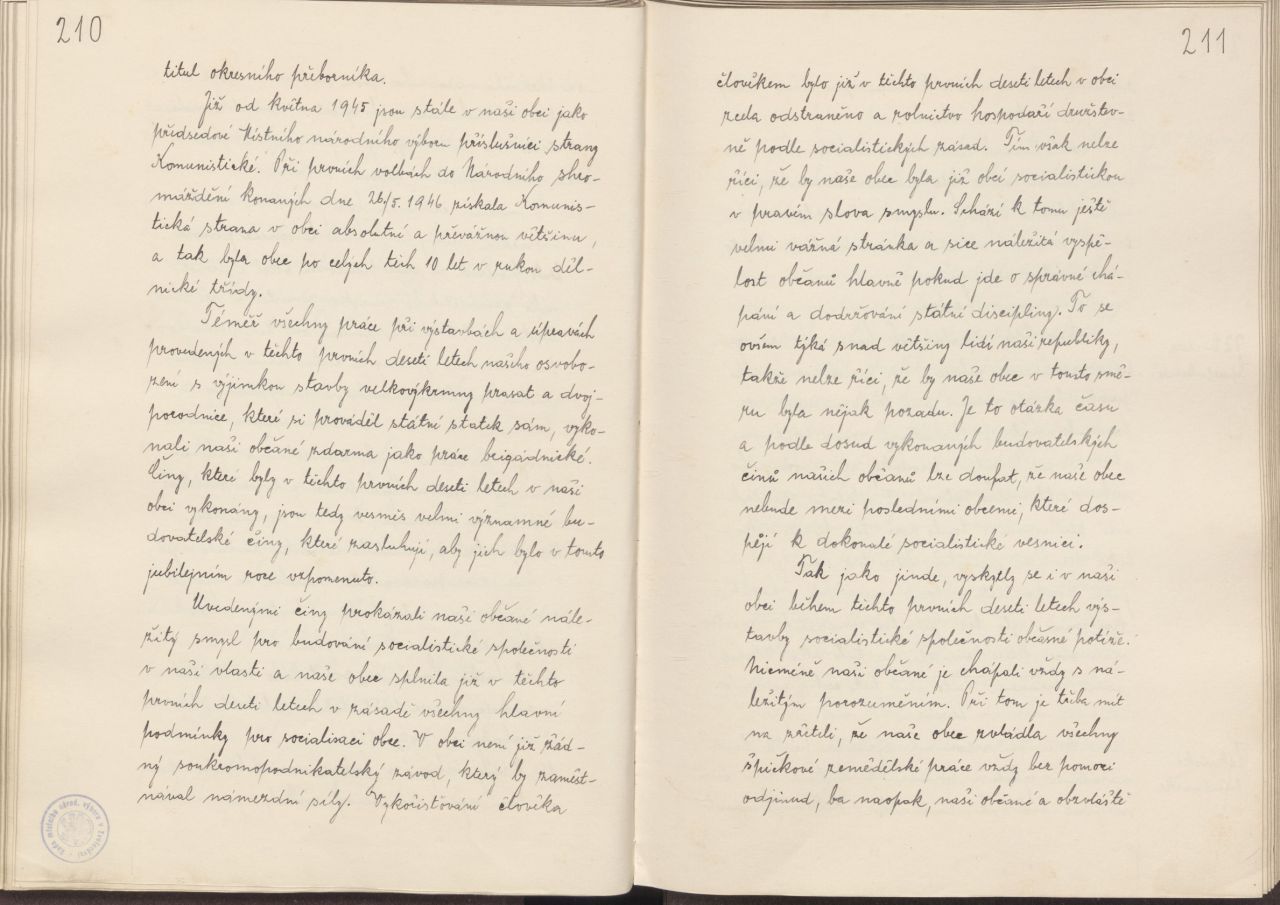 210
titul okresního přeborníka.
Již od května 1945 jsou stále v naší obci jako
předsedové Místního národního výboru příslušníci strany
Komunistické. Při prvních volbách do Národního shro-
máždění konaných dne 26./5. 1946 získala Komunis-
tická strana v obci absolutní a převážnou většinu,
a tak byla obec po celých těch 10 let v rukou děl-
nické třídy.
Téměř všechny práce při výstavbách a úpravách
provedených v těchto prvních deseti letech našeho osvobo-
zení s výjimkou stavby velkovýkrmny prasat a dvoj-
porodnice, které si prováděl státní statek sám, vyko-
nali naši občané zdarma jako práce brigádnické.
Činy, které byly v těchto prvních deseti letech v naší
obci vykonány, jsou tedy vesměs velmi významné bu-
dovatelské činy, které zasluhují, aby jich bylo v tomto
jubilejním roce vzpomenuto.
Uvedenými činy prokázali naši občané nále-
žitý smysl pro budování socialistické společnosti
v naší vlasti a naše obec splnila již v těchto
prvních deseti letech v zásadě všechny hlavní
podmínky pro socialisaci obce. V obci není již žád-
ný soukromopodnikatelský závod, který by zaměst-
nával námezdní síly. Vykořisťování člověka
211
člověkem bylo již v těchto prvních deseti letech v obci
zcela odstraněno a rolnictvo hospodaří družstev-
ně podle socialistických zásad. Tím však nelze
říci, že by naše obec byla již obcí socialistickou
v pravém slova smyslu. Schází k tomu ještě
velmi vážná stránka a sice náležitá vyspě-
lost občanů hlavně pokud jde o správné chá-
pání a dodržování státní discipliny. To se
ovšem týká snad většiny lidí naší republiky,
takže nelze říci, že by naše obec v tomto smě-
ru byla nějak pozadu. Je to otázka času
a podle dosud vykonaných budovatelských
činů našich občanů lze doufat, že naše obec
nebude mezi posledními obcemi, které dos-
pějí k dokonalé socialistické vesnici.
Tak jako jinde, vyskytly se i v naší
obci během těchto prvních deseti letech výs-
tavby socialistické společnosti občasné potíže.
Nicméně naši občané je chápali vždy s ná-
ležitým porozuměním. Při tom je třeba mít
na zřeteli, že naše obec zvládla všechny
špičkové zemědělské práce vždy bez pomoci
odjinud, ba naopak, naši občané a obzvláště